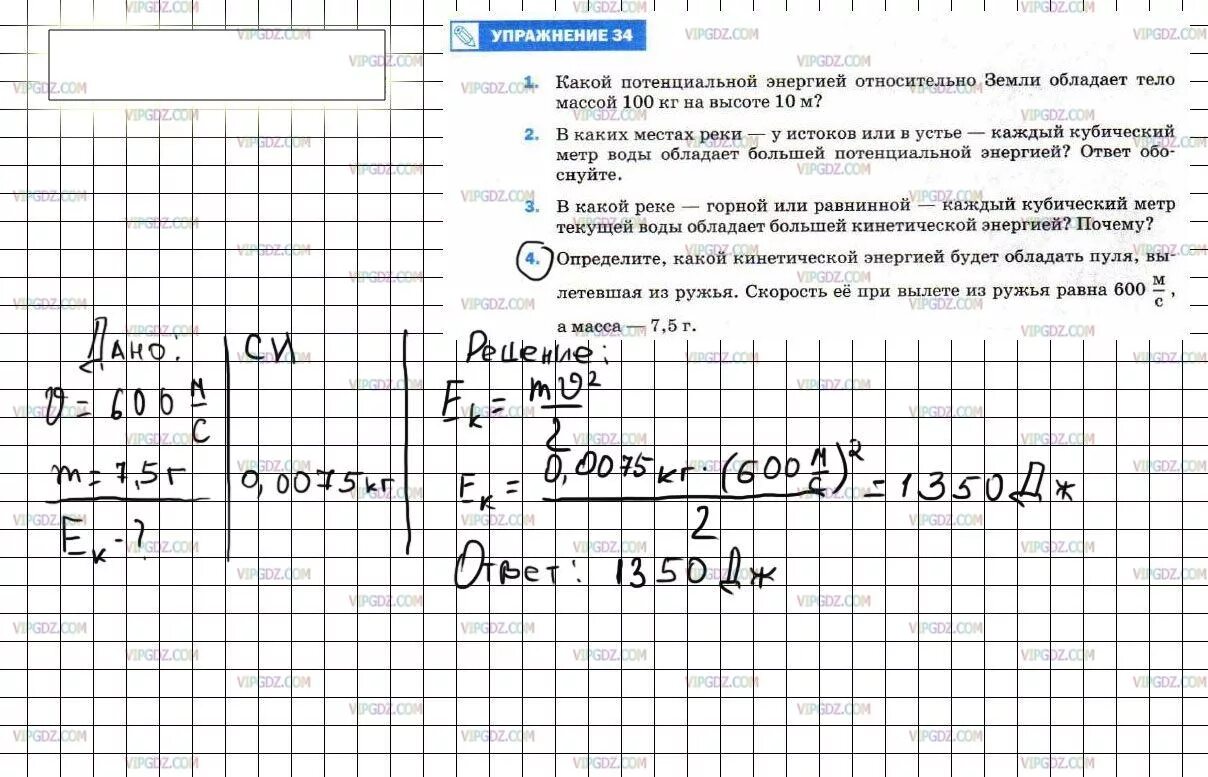 УПРАЖНЕНИЕ 34
1. Какой потенциальной энергией относительно Земли обладает тело
массой 100 кг на высоте 10 м?
2. В каких местах реки — у истоков или в устье — каждый кубический
метр воды обладает большей потенциальной энергией? Ответ обо-
снуйте.
3. В какой реке — горной или равнинной — каждый кубический метр
текущей воды обладает большей кинетической энергией? Почему?
4. Определите, какой кинетической энергией будет обладать пуля, вы-
летевшая из ружья. Скорость её при вылете из ружья равна 600 м/с,
а масса — 7,5 г.
Дано:
υ = 600 м/с
m = 7,5 г
Eк - ?
СИ
0,0075 кг
Решение:
Eк = mυ²/2
Eк = 0,0075 кг · (600 м/с)²/2 = 1350 Дж
Ответ: 1350 Дж
VIPGDZ.COM